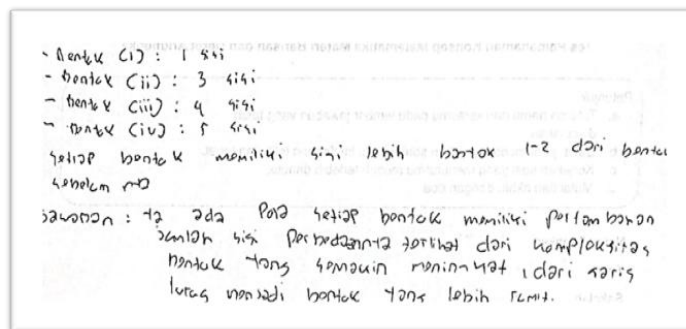 - Bentuk (i) : 1 sisi
- Bentuk (ii) : 3 sisi
- Bentuk (iii) : 4 sisi
- Bentuk (iv) : 5 sisi
setiap bentuk memiliki sisi lebih bantok 1-2 dari bentu
sebelum nya
Jawaban : Ya ada Pola setiap bentuk memiliki pertambahan
Jumlah sisi Perbedaannya terlihat dari kompleksitas
bentuk yang semakin meningkat, dari garis
lurus menjadi bentuk yang lebih rumit.